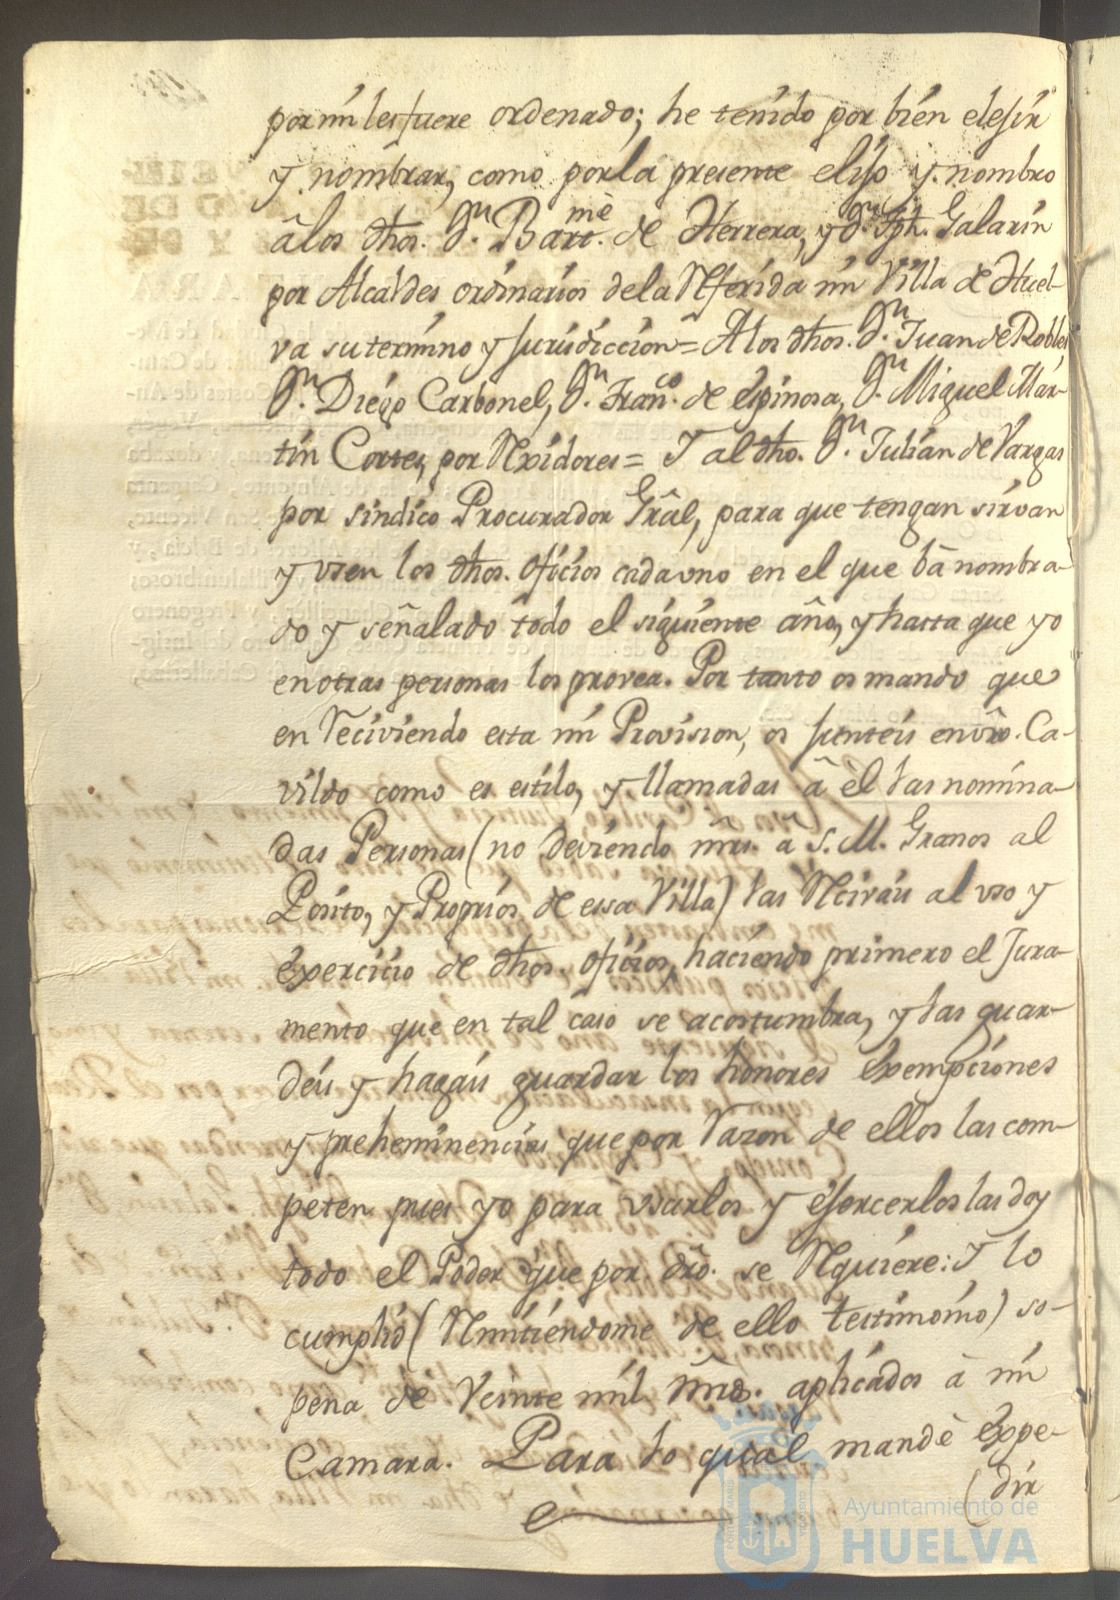 por mi les fuere ordenado; he tenido por bien elejir
y nombrar, como por la presente elijo y nombro
â los dhos. Dn. Barme. de Herrera, y Dn. Jph. Galarin
por Alcaldes ordinarios de la Referida mi Villa de Huel-
va su termino y jurisdiccion = A los dhos. Dn. Juan de Robles
Dn. Diego Carbonel, Dn. Franco. de Espinosa, Dn. Miguel Mar-
tin Cortes, por Rexidores = Y al dho. Dn. Julian de Vargas
por sindico Procurador Grâl, para que tengan sirvan
y vsen los dhos. oficios cada vno en el que bâ nombra-
do y señalado todo el siguiente año, y hasta que yo
en otras personas los provea. Por tanto os mando que
en Reciviendo esta mi Provision, os junteis en vrô. Ca-
vildo como es estilo, y llamadas â êl las nomina-
das Personas (no deviendo mrs. â S. M. Granos al
Posito, y Proprios de essa Villa) las Reciváis al vso y
exercicio de dhos. oficios, haciendo primero el Jura-
mento que en tal caso se acostumbra, y las guar-
deis y hagáis guardar los honores exempciones
y preheminencias que por Razon de ellos las com-
peten pues yo para vsarlos y ejercerlos las doy
todo el Poder que por dro. se Requiere: Y lo
cumplid (Remitiendome de ello testimonio) so-
pena de Veinte mil mrs. aplicados à mi
Camara. Para lo qual mandè expe-
(dir
Ayuntamiento de
HUELVA